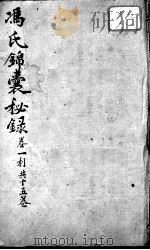 馮氏錦囊秘錄 卷一利共十五卷